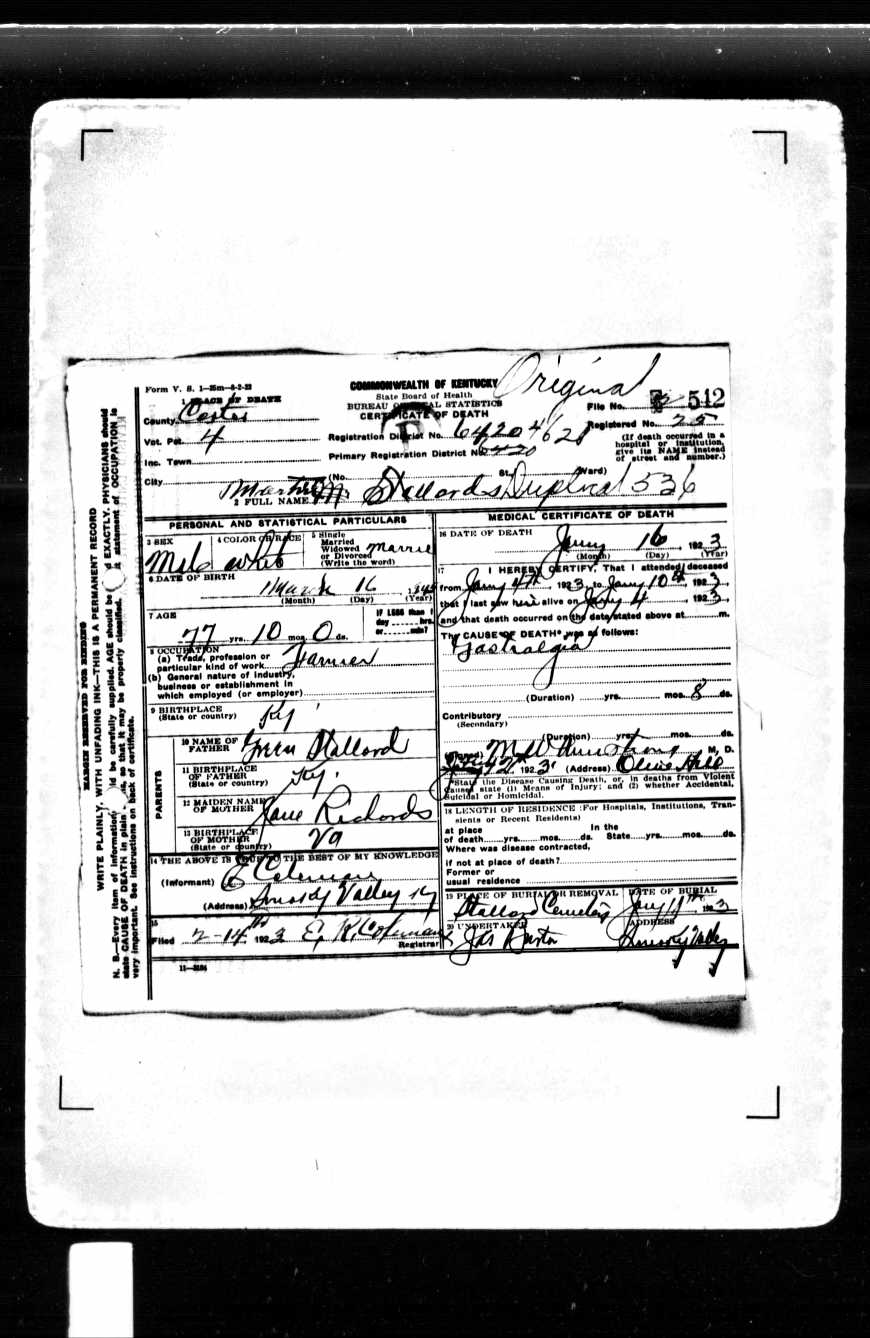 Original
Form V. S. 1—25m—8-2-22
COMMONWEALTH OF KENTUCKY
State Board of Health
BUREAU OF VITAL STATISTICS
CERTIFICATE OF DEATH
File No. 542
Registered No. 25
(If death occurred in a hospital or institution, give its NAME instead of street and number.)
1 PLACE OF DEATH
County Carter
Vot. Pct. 4
Inc. Town
City
Registration District No. 6420 4621
Primary Registration District No. 6420
(No. St., Ward)
2 FULL NAME M. Stallards Duplical 536
PERSONAL AND STATISTICAL PARTICULARS
3 SEX Male
4 COLOR OR RACE white
5 Single Married Widowed or Divorced (Write the word) Marrie
6 DATE OF BIRTH
March 16
(Month) (Day) (Year)
7 AGE
77 yrs. 10 mos. 0 ds.
IF LESS than 1 day hrs. or min?
8 OCCUPATION
(a) Trade, profession or particular kind of work Farmer
(b) General nature of industry, business or establishment in which employed (or employer)
9 BIRTHPLACE
(State or country) Ky
PARENTS
10 NAME OF FATHER Green Stallard
11 BIRTHPLACE OF FATHER
(State or country) Ky.
12 MAIDEN NAME OF MOTHER Jane Richards
13 BIRTHPLACE OF MOTHER
(State or country) Va
14 THE ABOVE IS TRUE TO THE BEST OF MY KNOWLEDGE
(Informant) E Coleman
(Address) Smoky Valley Ky
15
Filed 2-14th 1923 E. K. Coleman
Registrar
11—3184
MEDICAL CERTIFICATE OF DEATH
16 DATE OF DEATH Jany 16, 1923
(Month) (Day) (Year)
17 I HEREBY CERTIFY, That I attended deceased
from Jany 4th, 1923, to Jany 10th, 1923,
that I last saw h alive on Jany 4, 1923,
and that death occurred on the date stated above at m.
The CAUSE OF DEATH* was as follows:
Gastralgia
(Duration) yrs. mos. 8 ds.
Contributory
(Secondary)
(Duration) yrs. mos. ds.
(Signed) M W Armstrong M. D.
1923. (Address) Olive Hill
*State the Disease Causing Death, or, in deaths from Violent Causes state (1) Means of Injury; and (2) whether Accidental, Suicidal or Homicidal.
18 LENGTH OF RESIDENCE (For Hospitals, Institutions, Transients or Recent Residents)
at place of death yrs. mos. ds. In the State yrs. mos. ds.
Where was disease contracted,
if not at place of death?
Former or
usual residence
19 PLACE OF BURIAL OR REMOVAL DATE OF BURIAL
Stallard Cemetery Jany 1923
20 UNDERTAKER ADDRESS
Smoky Valley
MARGIN RESERVED FOR BINDING
WRITE PLAINLY, WITH UNFADING INK—THIS IS A PERMANENT RECORD
N. B.—Every item of information should be carefully supplied. AGE should be d EXACTLY. PHYSICIANS should
state CAUSE OF DEATH in plain so that it may be properly classified. t statement of OCCUPATION is
very important. See instructions on back of certificate.